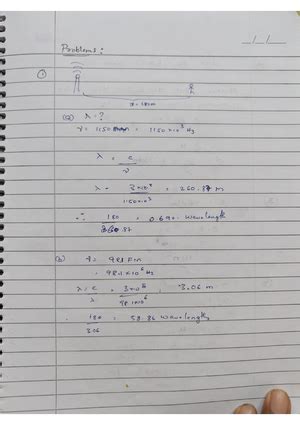 _/_/_
Problems :
①
x = 180m
(a) λ = ?
ν = 1150 = 1150 x 10³ Hz
λ = c / ν
λ = 3x10⁸ / 1150 x 10³ = 260.87 m
∴ 180 / 260.87 = 0.690 wavelength
(b) = 98.1
= 98.1 x 10⁶ Hz
λ = c / λ = 3x10⁸ / 98.1 x 10⁶ = 3.06 m
∴ 180 / 3.06 = 58.86 wavelengths